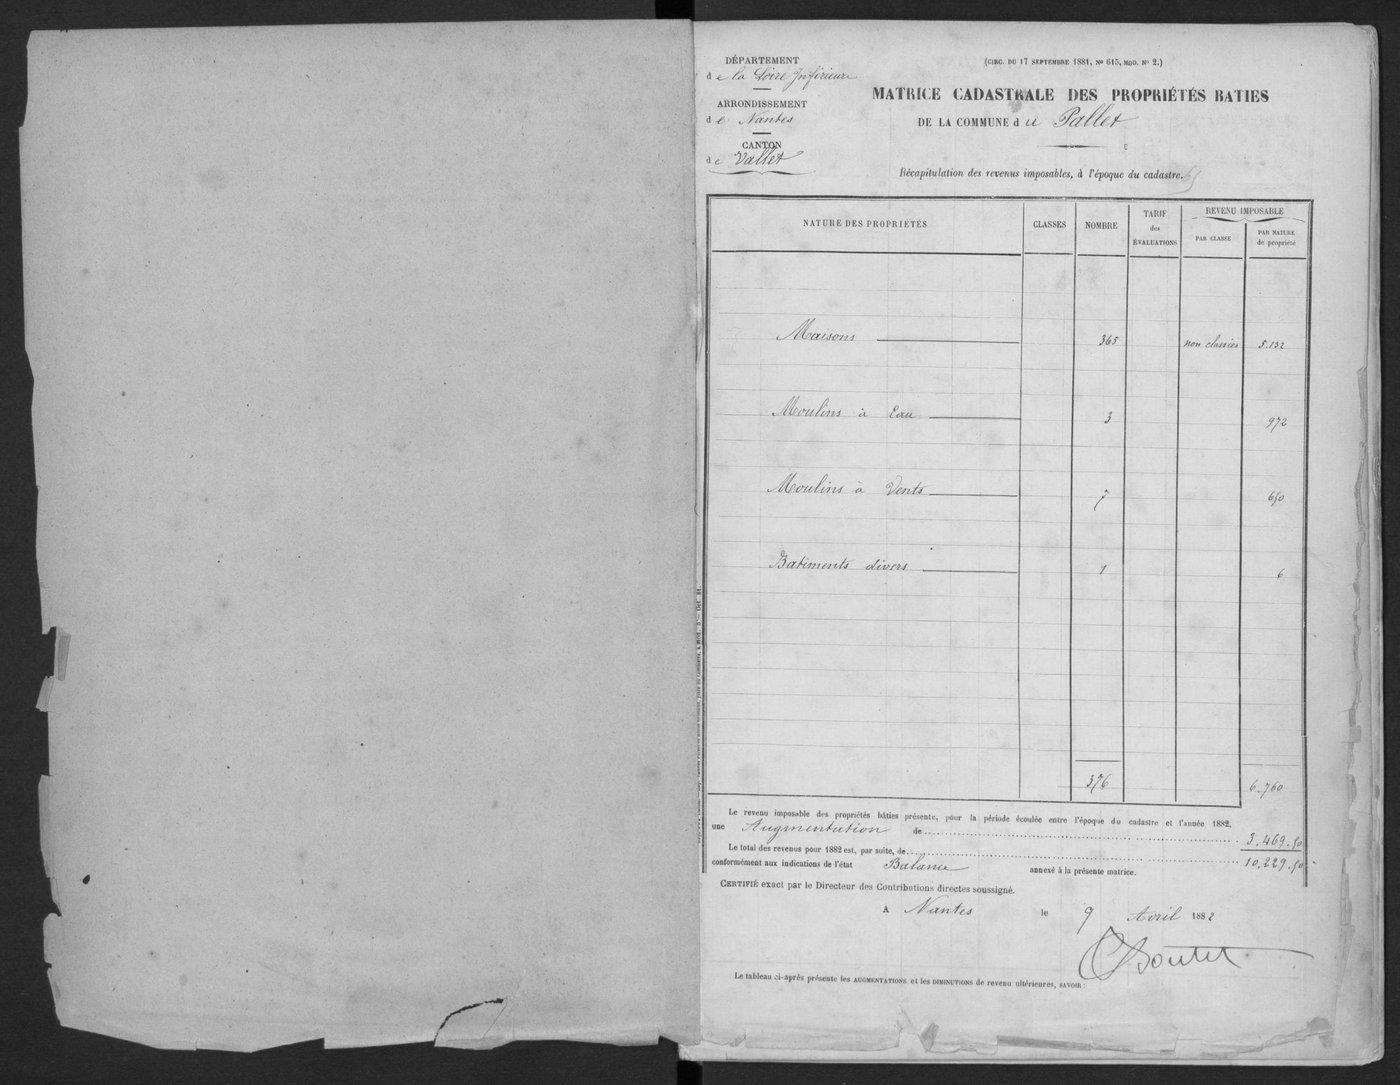 DÉPARTEMENT
de la Loire Inférieure
ARRONDISSEMENT
de Nantes
CANTON
de Vallet
(CIRC. DU 17 SEPTEMBRE 1881, No 615, MOD. No 2.)
MATRICE CADASTRALE DES PROPRIÉTÉS BATIES
DE LA COMMUNE du Pallet
Récapitulation des revenus imposables, à l'époque du cadastre.
NATURE DES PROPRIÉTÉS CLASSES NOMBRE TARIF des ÉVALUATIONS REVENU IMPOSABLE
PAR CLASSE PAR NATURE de propriété
Maisons 365 non classées 5.132
Moulins à Eau 3 972
Moulins à Vents 7 650
Batiments divers 1 6
376 6.760
Le revenu imposable des propriétés bâties présente, pour la période écoulée entre l'époque du cadastre et l'année 1882,
une Augmentation de 3.469.50
Le total des revenus pour 1882 est, par suite, de 10.229.50
conformément aux indications de l'état Balance annexé à la présente matrice.
CERTIFIÉ exact par le Directeur des Contributions directes soussigné.
A Nantes le 9 Avril 1882
Le tableau ci-après présente les AUGMENTATIONS et les DIMINUTIONS de revenu ultérieures, SAVOIR :